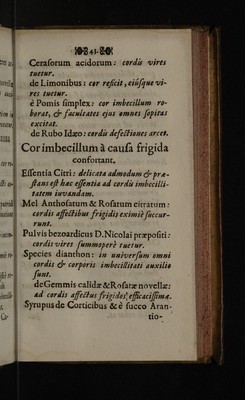 43.
Cerasorum acidorum: cordis vires
tuetur.
de Limonibus: cor reficit, ejúsque vi-
res tuetur.
è Pomis simplex: cor imbecillum ro-
borat, & facultates ejus omnes sopitas
excitat.
de Rubo Idæo: cordis defectiones arcet.
Cor imbecillum à causa frigida
confortant.
Essentia Citri: delicata admodum & præ-
stans est hæc essentia ad cordis imbecilli-
tatem iuvandam.
Mel Anthosatum & Rosatum citratum:
cordis affectibus frigidis eximiè succur-
runt.
Pulvis bezoardicus D. Nicolai præpositi:
cordis vires summoperè tuetur.
Species dianthon: in universum omni
cordis & corporis imbecillitati auxilio
sunt.
de Gemmis calidæ & Rosatæ novellæ:
ad cordis affectus frigidos efficacissimæ.
Syrupus de Corticibus & è succo Aran-
tio-